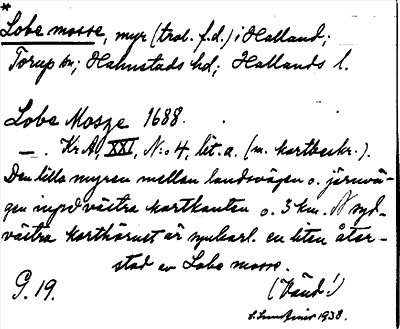 *
Lobe mosse, myr (trol. f.d.) i Halland;
Torup sn; Halmstads hd; Hallands l.
Lobe Mosze 1688.
— . Kr. A, XXI, N:o 4, lit. a. (m. kartbeskr.).
Den lilla myren mellan landsvägen o. järnvä-
gen mot västra kartkanten o. 3 km. N syd-
västra karthörnet är synbarl. en liten åter-
stod av Lobe mosse.
G. 19. (Vänd!)
1938.